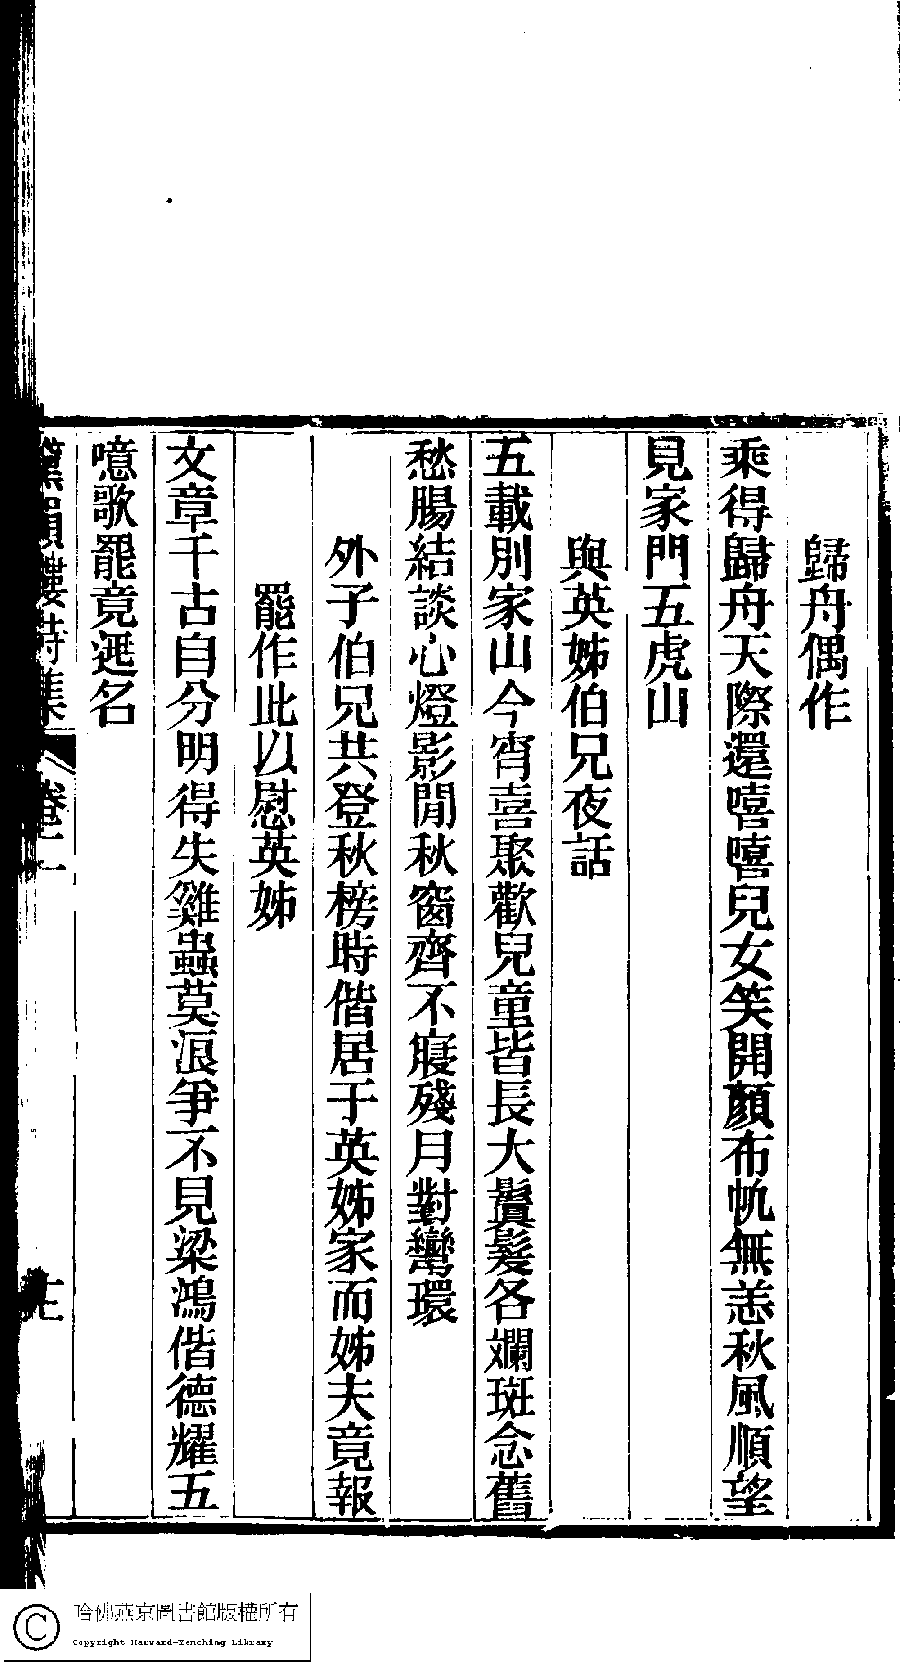 歸舟偶作
乘得歸舟天際還嘻嘻兒女笑開顏布帆無恙秋風順望
見家門五虎山
與英姊伯兄夜話
五載別家山今宵喜聚歡兒童皆長大鬢髮各斕斑念舊
愁腸結談心燈影閒秋窗齊不寢殘月對彎環
外子伯兄共登秋榜時偕居于英姊家而姊夫竟報
罷作此以慰英姊
文章千古自分明得失雞蟲莫浪爭不見梁鴻偕德耀五
噫歌罷竟逃名
黛韻樓詩集
卷二
哈佛燕京圖書館版權所有
Copyright Harvard-Yenching Library